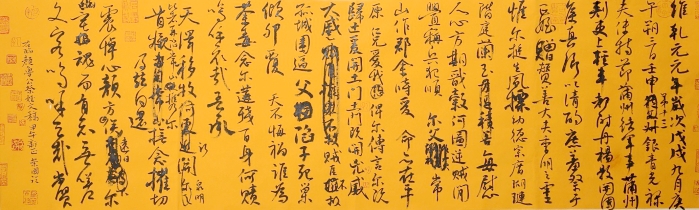 維乾元元年歲次戊戌九月庚
午朔三日壬申第十三叔銀青光祿
夫使持節蒲州諸軍事蒲州
刺史上輕車都尉丹楊縣開國
侯真卿以清酌庶羞祭于
亡姪贈贊善大夫季明之靈
惟爾挺生夙標幼德宗廟瑚璉
階庭蘭玉每慰
人心方期戩穀何圖逆賊間
釁稱兵犯順爾父常
山作郡余時受命亦在平
原仁兄愛我俾爾傳言爾既
歸止爰開土門土門既開兇威
大蹙賊臣不救
孤城圍逼父陷子死巢
傾卵覆天不悔禍誰為
荼毒念爾遘殘百身何贖
嗚乎哀哉吾承
天澤移牧河關泉明
比者再陷常山攜爾
首櫬及茲同還撫念摧切
震悼心顏方俟遠日
爾幽宅魂而有知無嗟
久客嗚呼哀哉尚饗